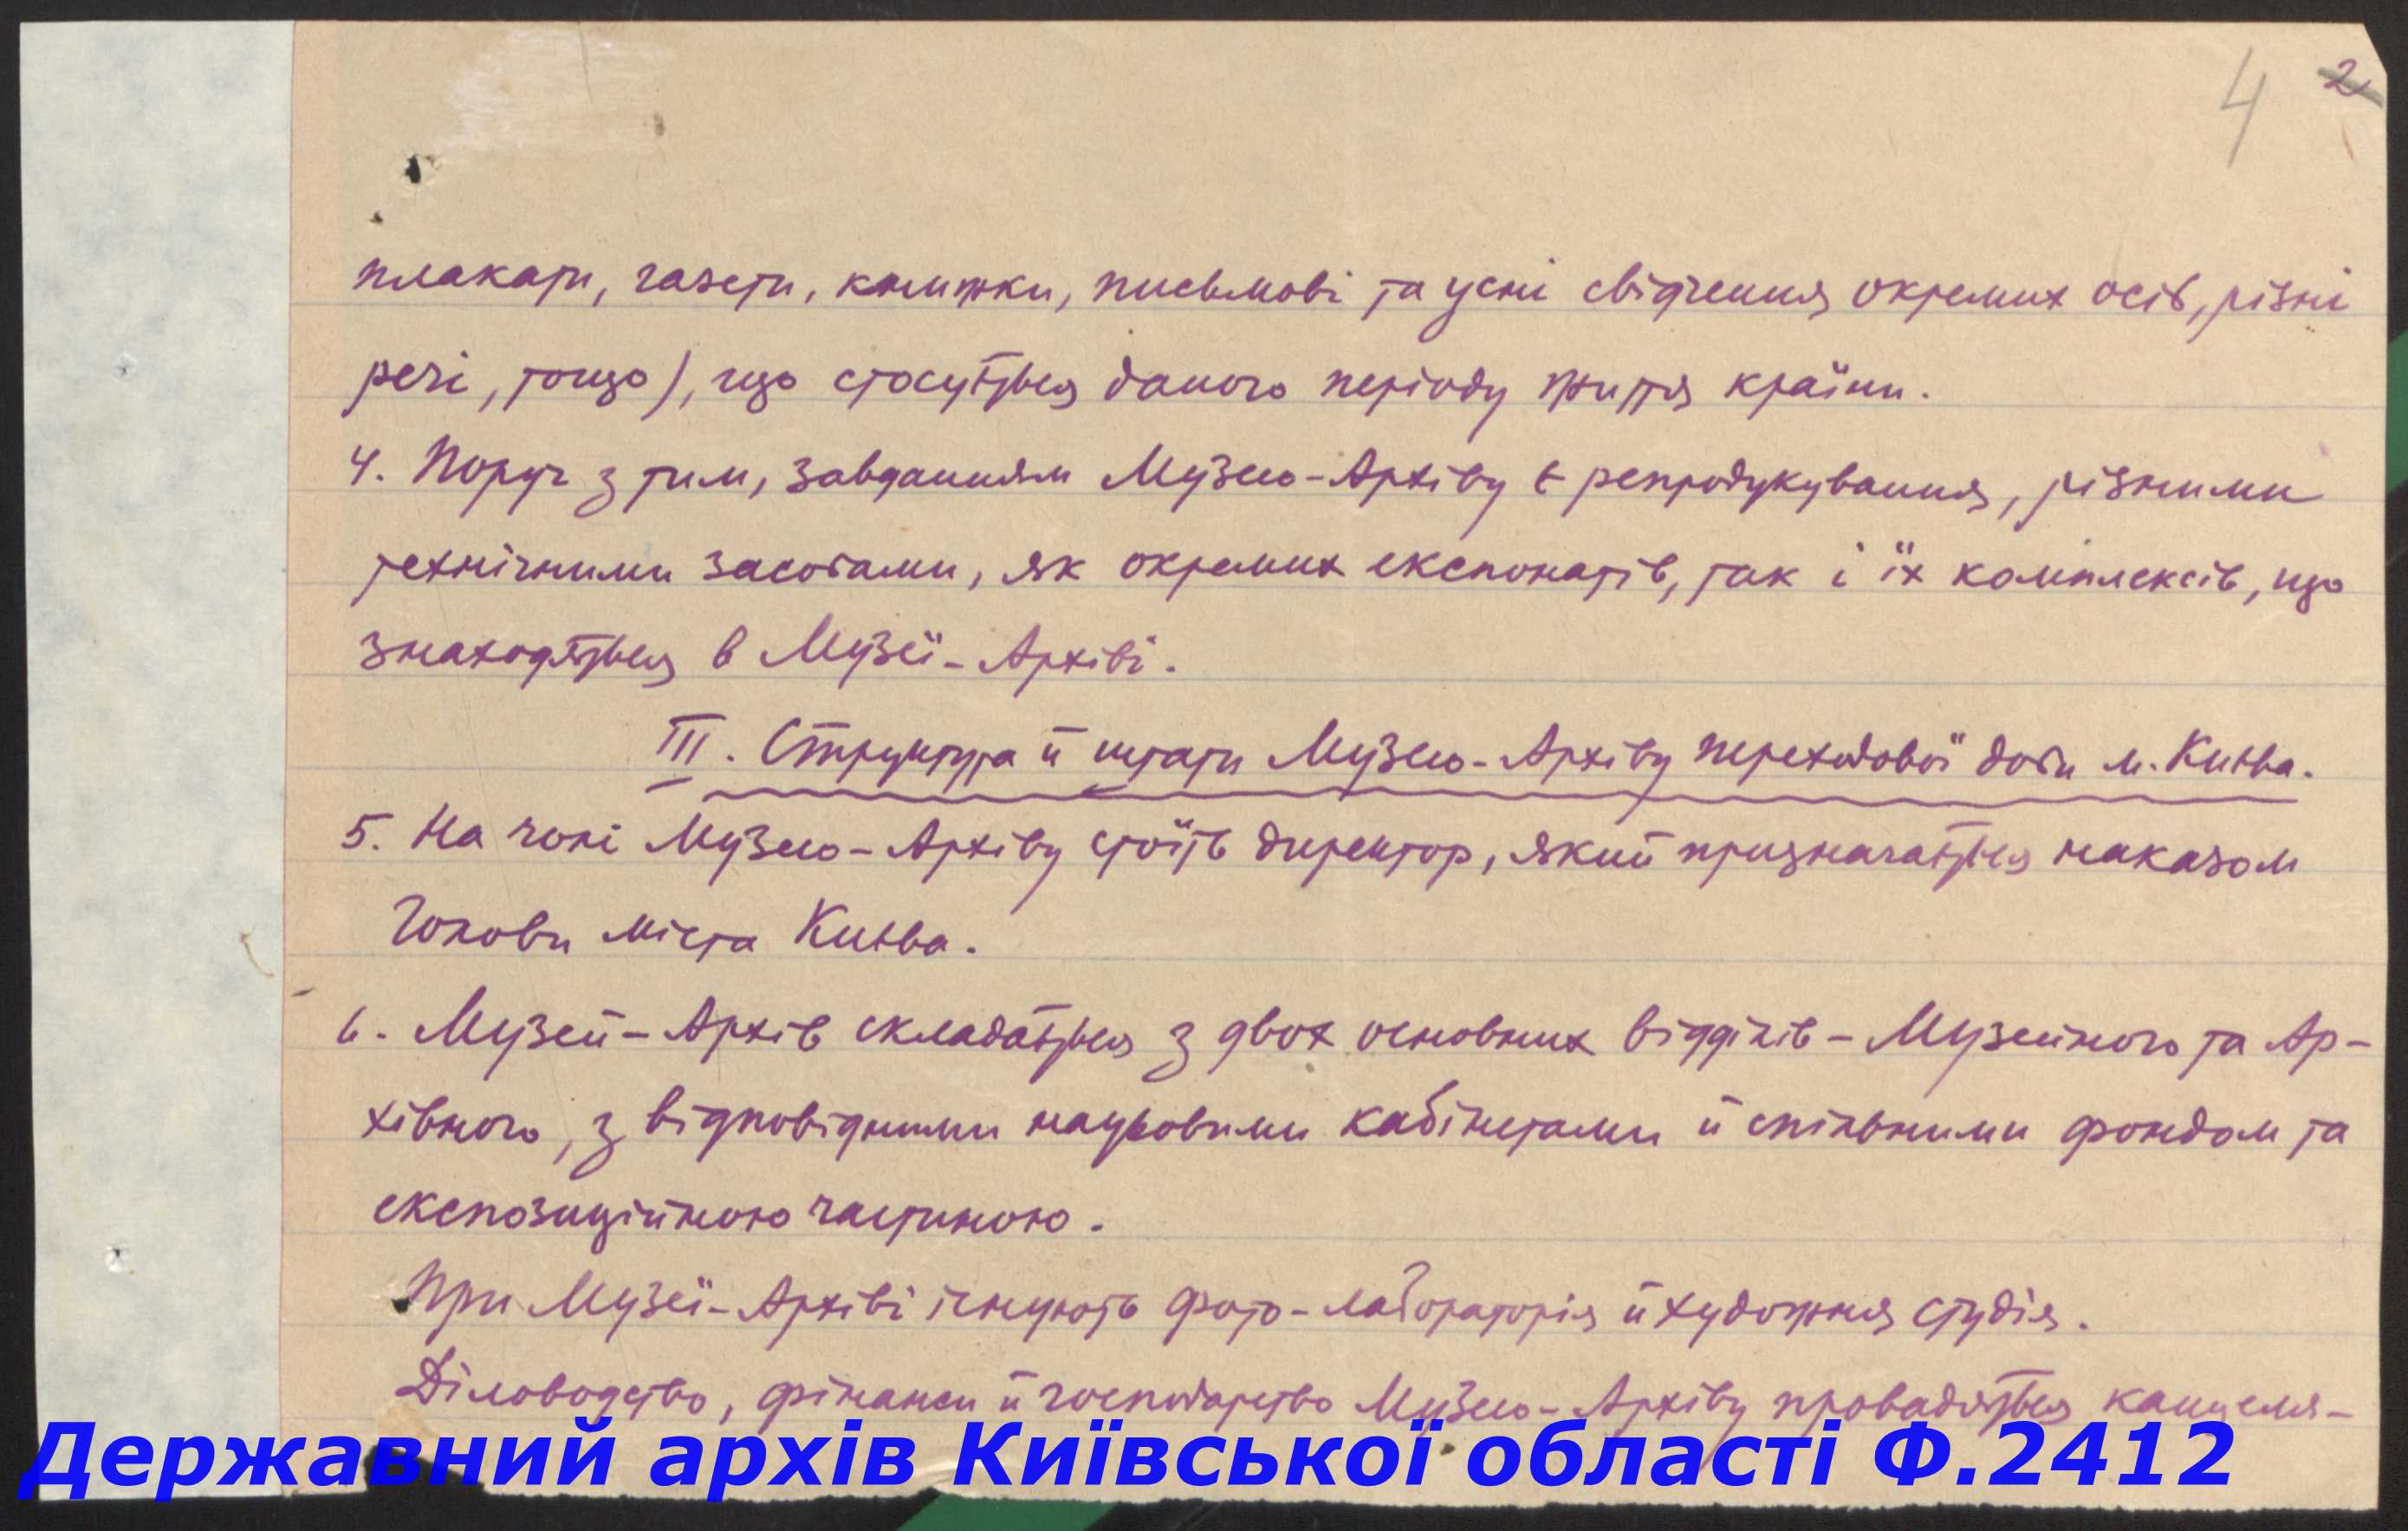 4 2
плакати, газети, книжки, письмові та усні свідчення окремих осіб, різні
речі, тощо), що стосується даного періоду життя країни.
4. Поруч з тим, завданням Музею-Архіву є репродукування, різними
технічними засобами, як окремих експонатів, так і їх комплексів, що
знаходяться в Музеї-Архіві.
III. Структура й штати Музею-Архіву переходової доби м. Києва.
5. На чолі Музею-Архіву стоїть директор, який призначається наказом
Голови міста Києва.
6. Музей-Архів складається з двох основних відділів – Музейного та Ар-
хівного, з відповідними науковими кабінетами й спільними фондом та
експозиційною частиною.
При Музеї-Архіві існують фото-лабораторія й художня студія.
Діловодство, фінанси й господарство Музею-Архіву провадяться канцеля-
Державний архів Київської області Ф.2412